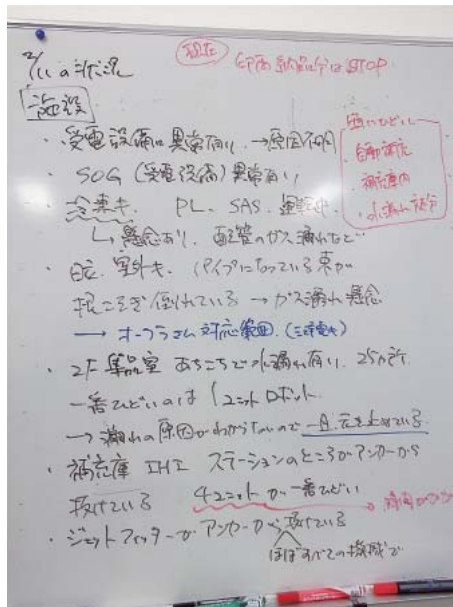 2/11の状況
現在
計画納品分はSTOP
施設
・受電設備に異常有り →原因不明
SOG (受電設備) 異常有り
・冷凍キ PL. SAS. 運転中
↳ 懸念あり. 配管のガス漏れなど
・自立. 室外キ. パイプになっている束が
根こそぎ倒れている → ガス漏れ懸念
→ オークラさん対応範囲. (三菱電キ)
・2F 集品室 あちこちで水漏れ有り. 25ヵ所
一番ひどいのは 1ユニット ロボット
→ 漏れの原因がわからないので一旦元を止めている
・補充庫 IHI ステーションのところがアンカーから
抜けている
4ユニットが一番ひどい
・ジェットフィッターが アンカーから抜けている
ほぼすべての機械で
自動補充
補充庫内
水漏れ